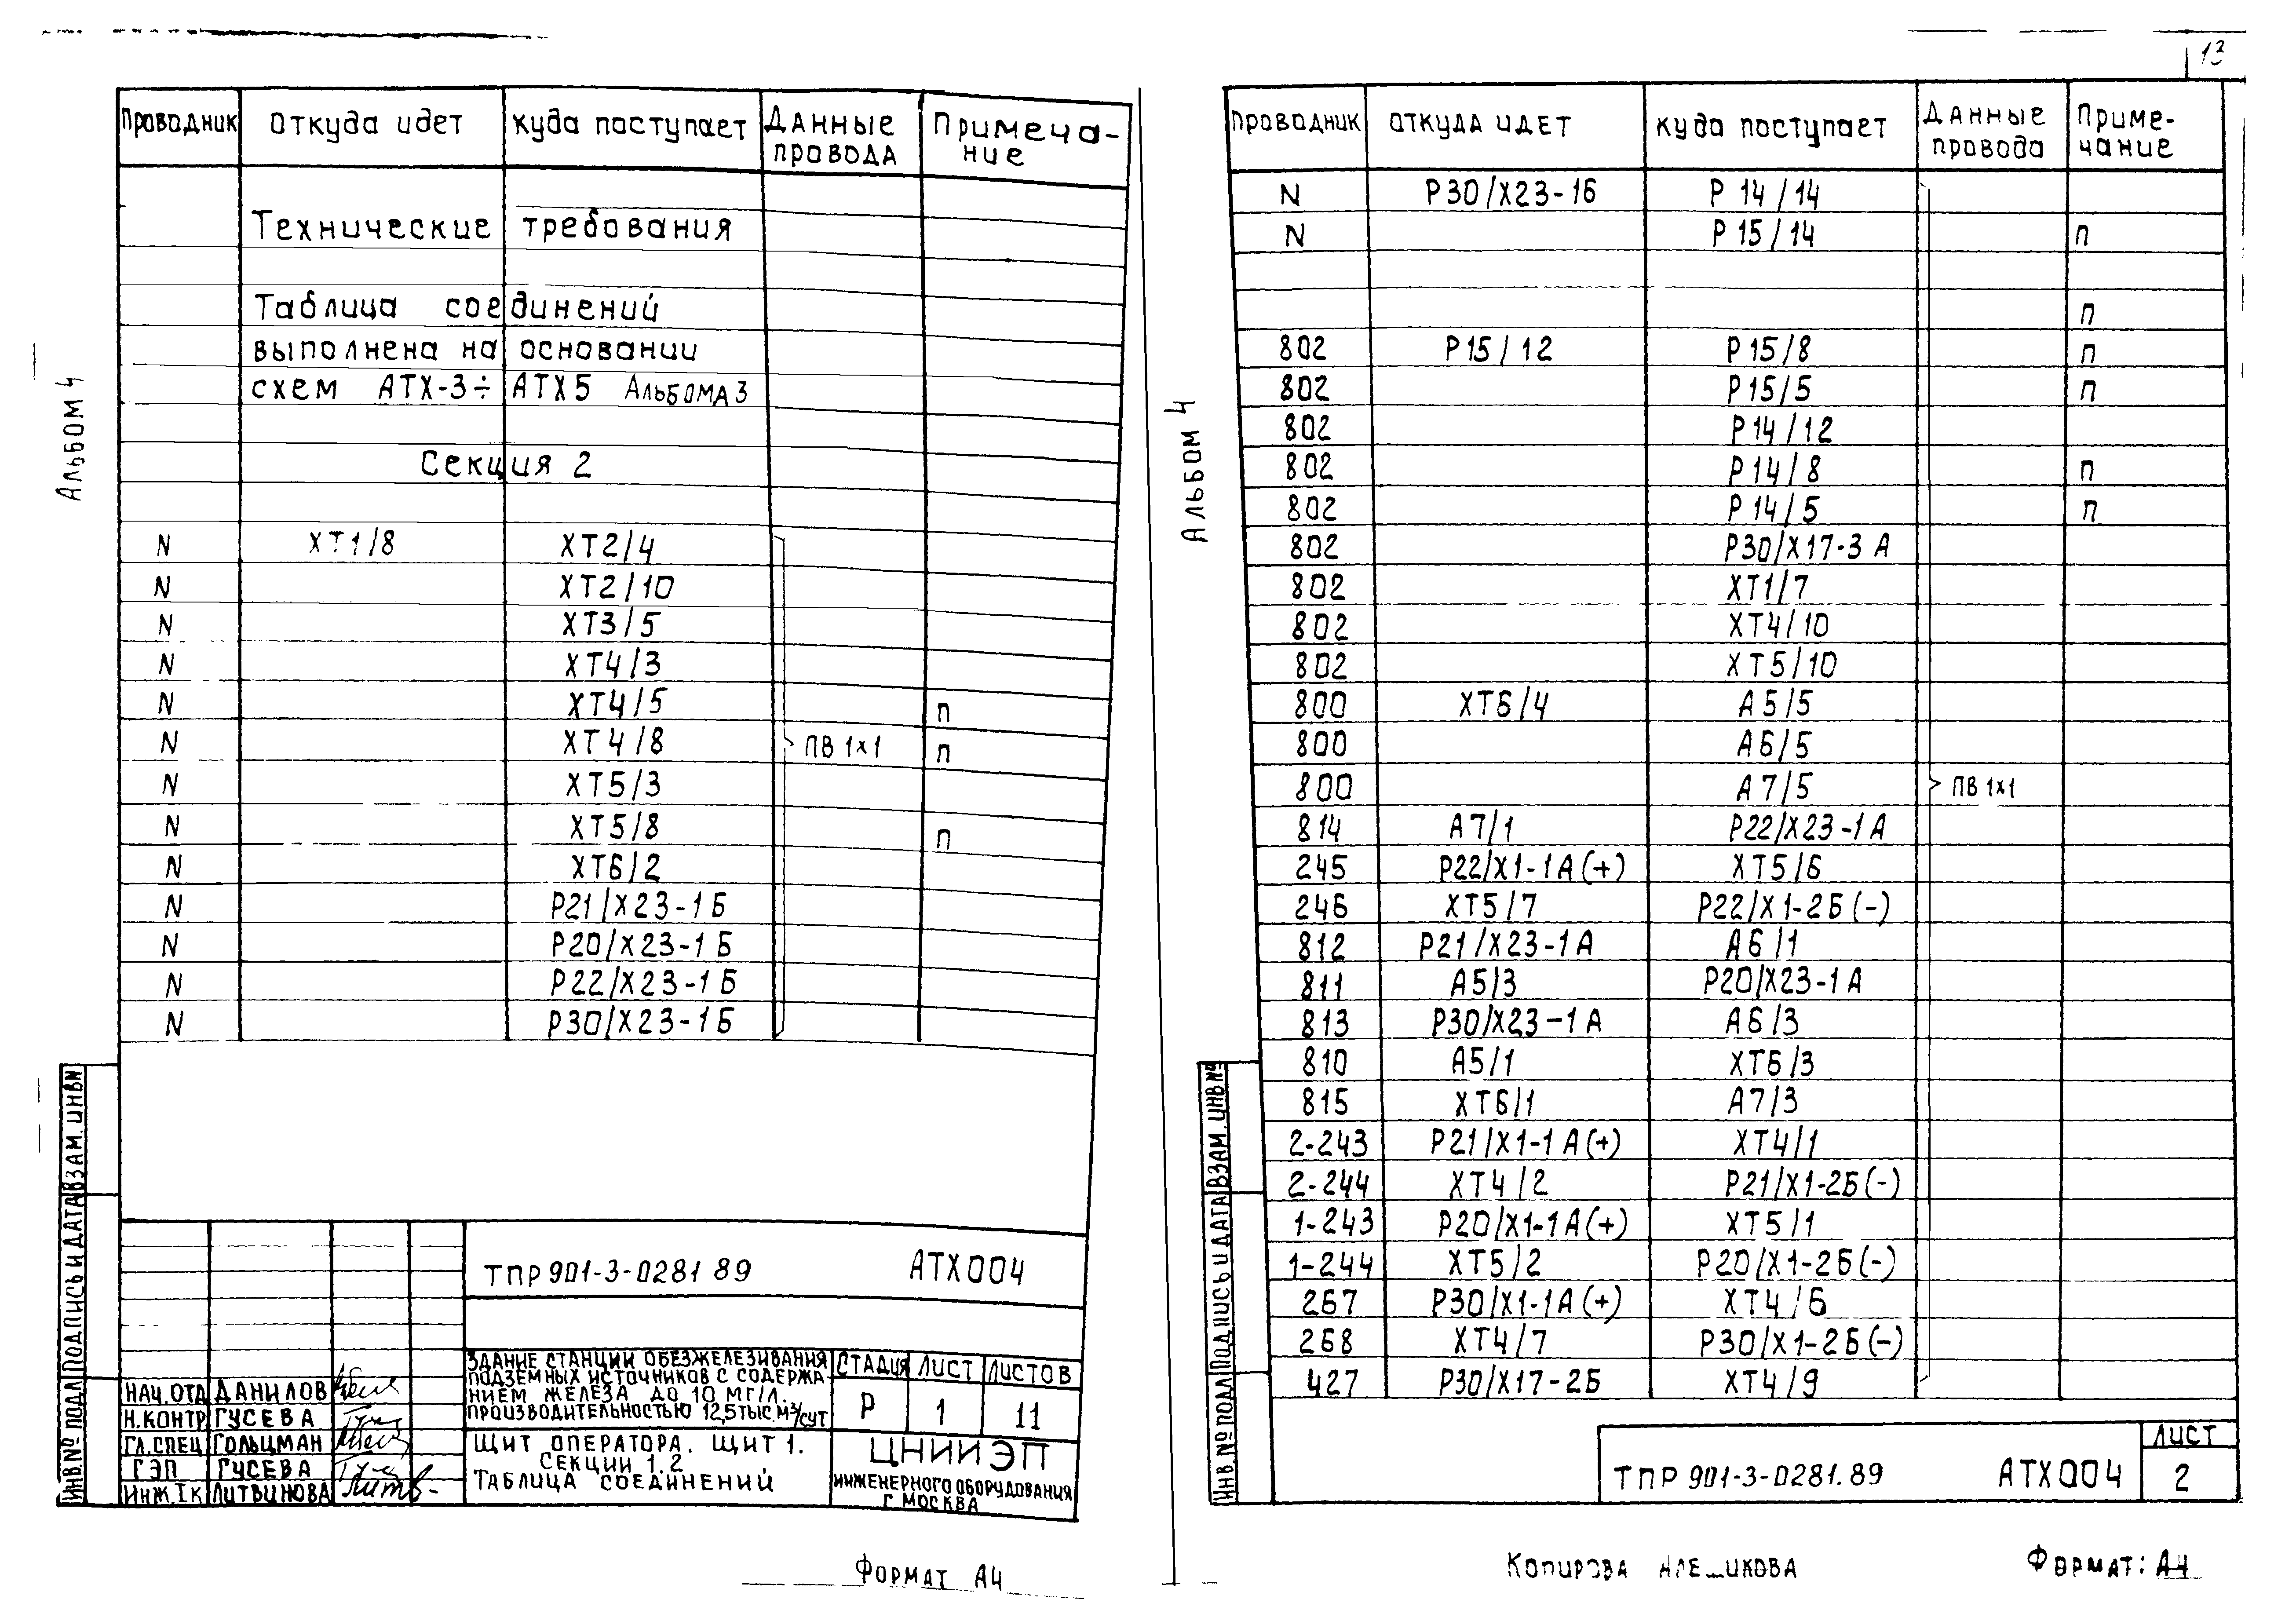 13
Проводник откуда идет куда поступает Данные провода Примечание
Технические требования
Таблица соединений
выполнена на основании
схем АТХ-3÷ АТХ5 Альбома 3
Секция 2
N ХТ1/8 ХТ2/4
N ХТ2/10
N ХТ3/5
N ХТ4/3
N ХТ4/5 п
N ХТ4/8 ПВ 1х1 п
N ХТ5/3
N ХТ5/8 п
N ХТ6/2
N Р21/Х23-1Б
N Р20/Х23-1Б
N Р22/Х23-1Б
N Р30/Х23-1Б
Альбом 4
ИНВ.№ ПОДЛ ПОДПИСЬ И ДАТА ВЗАМ. ИНВ№
ТПР 901-3-0281 89 АТХ004
ЗДАНИЕ СТАНЦИИ ОБЕЗЖЕЛЕЗИВАНИЯ
ПОДЗЕМНЫХ ИСТОЧНИКОВ С СОДЕРЖА
НИЕМ ЖЕЛЕЗА ДО 10 МГ/Л.
ПРОИЗВОДИТЕЛЬНОСТЬЮ 12,5ТЫС.М³/СУТ
СТАДИЯ ЛИСТ ЛИСТОВ
Р 1 11
НАЧ.ОТД ДАНИЛОВ
Н.КОНТР ГУСЕВА
ГЛ.СПЕЦ ГОЛЬЦМАН
ГЭП ГУСЕВА
ИНЖ.Iк ЛИТВИНОВА
ЩИТ ОПЕРАТОРА. ЩИТ 1.
СЕКЦИИ 1.2
ТАБЛИЦА СОЕДИНЕНИЙ
ЦНИИЭП
ИНЖЕНЕРНОГО ОБОРУДОВАНИЯ
Г МОСКВА
ФОРМАТ А4
Проводник откуда идет куда поступает Данные провода Приме-чание
N Р30/Х23-1б Р 14/14
N Р 15/14 п
п
802 Р15/12 Р15/8 п
802 Р15/5 п
802 Р14/12
802 Р14/8 п
802 Р14/5 п
802 Р30/Х17-3А
802 ХТ1/7
802 ХТ4/10
802 ХТ5/10
800 ХТ6/4 А5/5
800 А6/5
800 А7/5 ПВ 1х1
814 А7/1 Р22/Х23-1А
245 Р22/Х1-1А(+) ХТ5/6
246 ХТ5/7 Р22/Х1-2Б(-)
812 Р21/Х23-1А А6/1
811 А5/3 Р20/Х23-1А
813 Р30/Х23-1А А6/3
810 А5/1 ХТ6/3
815 ХТ6/1 А7/3
2-243 Р21/Х1-1А(+) ХТ4/1
2-244 ХТ4/2 Р21/Х1-2Б(-)
1-243 Р20/Х1-1А(+) ХТ5/1
1-244 ХТ5/2 Р20/Х1-2Б(-)
267 Р30/Х1-1А(+) ХТ4/6
268 ХТ4/7 Р30/Х1-2Б(-)
427 Р30/Х17-2Б ХТ4/9
Альбом 4
ИНВ.№ ПОДЛ ПОДПИСЬ И ДАТА ВЗАМ. ИНВ №
ТПР 901-3-0281.89 АТХ004
ЛИСТ
2
Копирова
Формат: А4